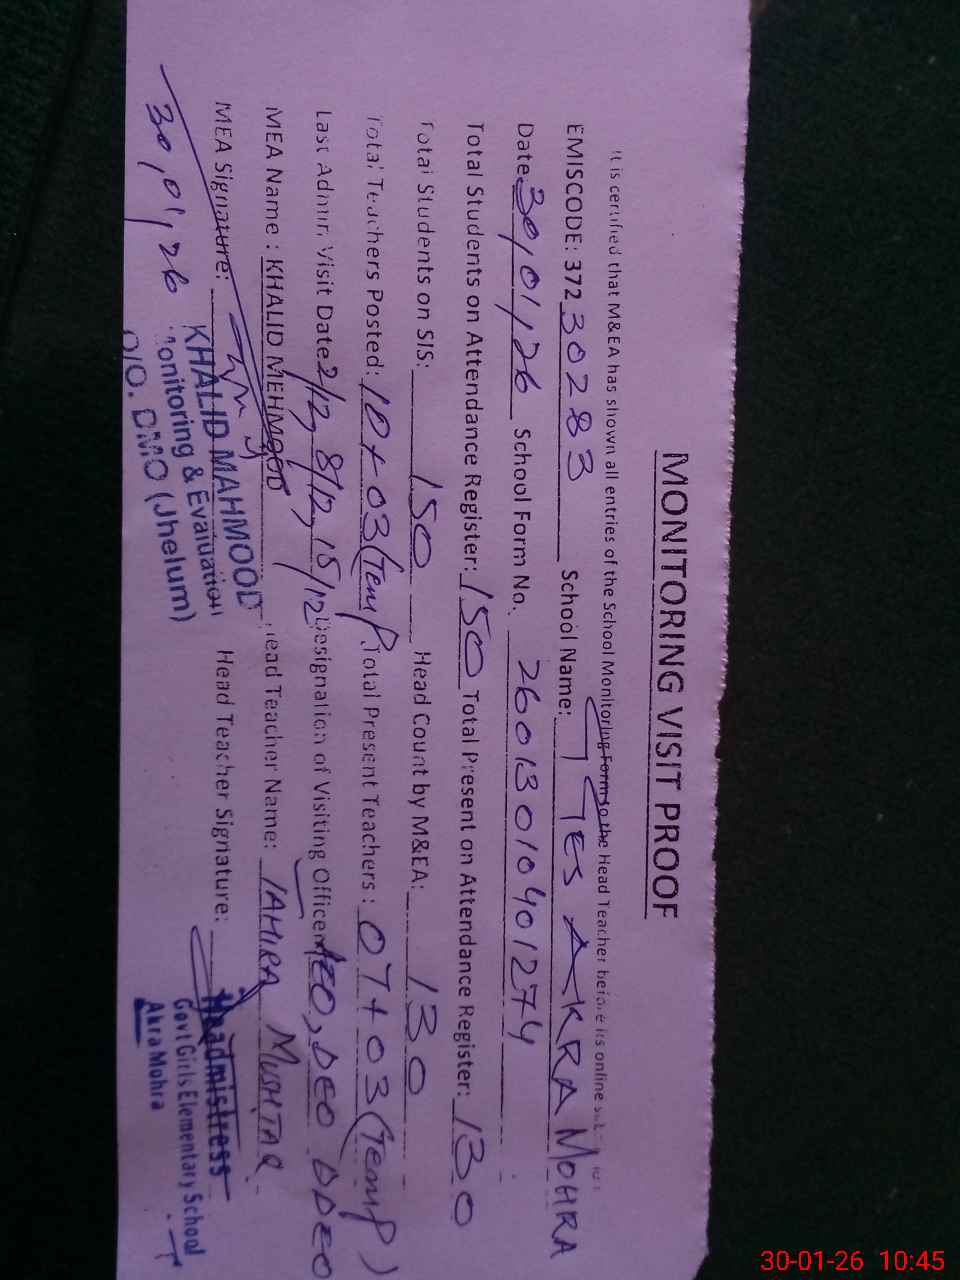 MONITORING VISIT PROOF
It is certified that M&EA has shown all entries of the School Monitoring Form to the Head Teacher before its online
EMISCODE: 372 30283 School Name: GGES AKRA MOHRA
Date 30/01/26 School Form No. 26013010401274
Total Students on Attendance Register: 150 Total Present on Attendance Register: 130
Total Students on SIS: 150 Head Count by M&EA: 130
Total Teachers Posted: 10+03(Temp) Total Present Teachers: 07+03(Temp)
Last Admin Visit Date 2/12, 8/12, 15/12 Designation of Visiting Officer AEO, DEO DDEO
MEA Name : KHALID MEHMOOD Head Teacher Name: TAHIRA MUSHTAQ
MEA Signature: Head Teacher Signature:
30/01/26
KHALID MAHMOOD
Monitoring & Evaluation
O/O. DMO (Jhelum)
Headmistress
Govt Girls Elementary School
Akra Mohra
30-01-26 10:45